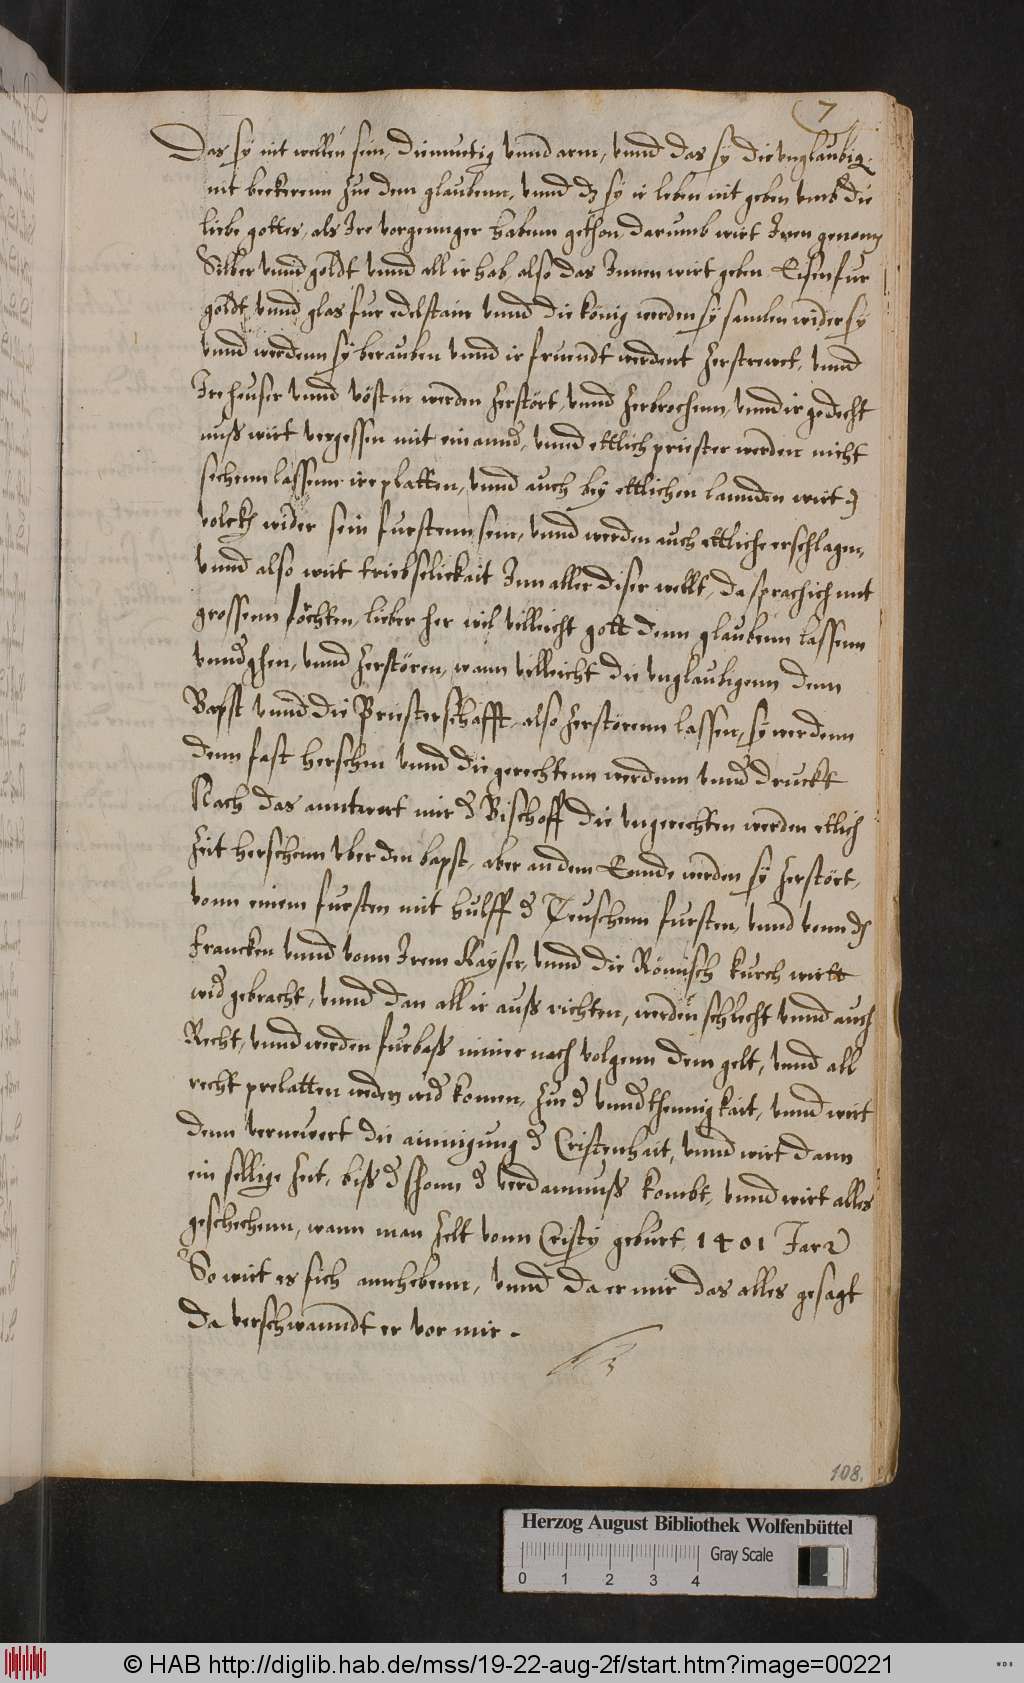 7
Das sÿ nit wellen sein, diemuetig vnnd arm, vnnd das sÿ die vnglaubig
nit bekerenn Zue dem glaubenn, vnnd dz sÿ ir leben nit geben vmb die
liebe gottes, als Ire vorgennger habenn gethon, darumb wirt Inen genomen
Silber vnnd goldt vnnd all ir hab, also das Innen wirt geben Eisen fur
goldt, vnnd glas fur edelstain vnnd die könig werden sÿ samlen wider sÿ
vnnd werdenn sÿ berauben vnnd ir freundt werdent Zerstrewet, vnnd
Ire heuser vnnd vösten werden Zerstört, vnnd Zerbrochenn, vnnd ir gedecht
nuß wirt vergessen mit einannd, vnnd ettlich priester werden nicht
sechenn lassenn ire platten, vnnd auch beÿ ettlichen lannden wirt dz
volckh wider sein furstenn sein, vnnd werden auch ettliche erschlagen,
vnnd also wirt triebselickait Inn aller diser wellt, da sprach ich mit
grossenn förchten, lieber her wil villeicht gott denn glaubenn lassenn
vnndghen, vnnd Zerstören, wann villeicht die vnglaubigenn denn
Bapst vnnd die Priesterschafft, also Zerstörenn lassen, sÿ werdenn
denn fast herschen vnnd die gerechtenn werdenn vnnd druckt
Nach das anntwort mir d Bischoff die vngerechten werden etlich
Zeit herschenn vber den bapst, aber an dem Ennde werden sÿ Zerstört,
vonn einem fursten mit hulff d Teuschenn fursten, vnnd vonn den
Francken vnnd vonn Irem Kaÿser, vnnd die Römisch kurch wirtt
wid gebracht, vnnd dan all ir auß richten, werden schlecht vnnd auch
Recht, vnnd werden furbaß nimer nach volgenn dem gelt, vnnd all
recht prelatten werden wid komen, Zue d vnndthennigkait, vnnd wirt
denn vernewert die ainnigung d Cristenhait, vnnd wirt dann
ein sellige Zeit, biß d shonn d verdamnuß kombt, vnnd wirt alles
geschechenn, wann man Zelt vonn Cristÿ geburt 1401 Jar
So wirt es sich annhebenn, vnnd da er mir das alles gesagt
da verschwanndt er vor mir.
108.
Herzog August Bibliothek Wolfenbüttel
Gray Scale
0 1 2 3 4
© HAB http://diglib.hab.de/mss/19-22-aug-2f/start.htm?image=00221